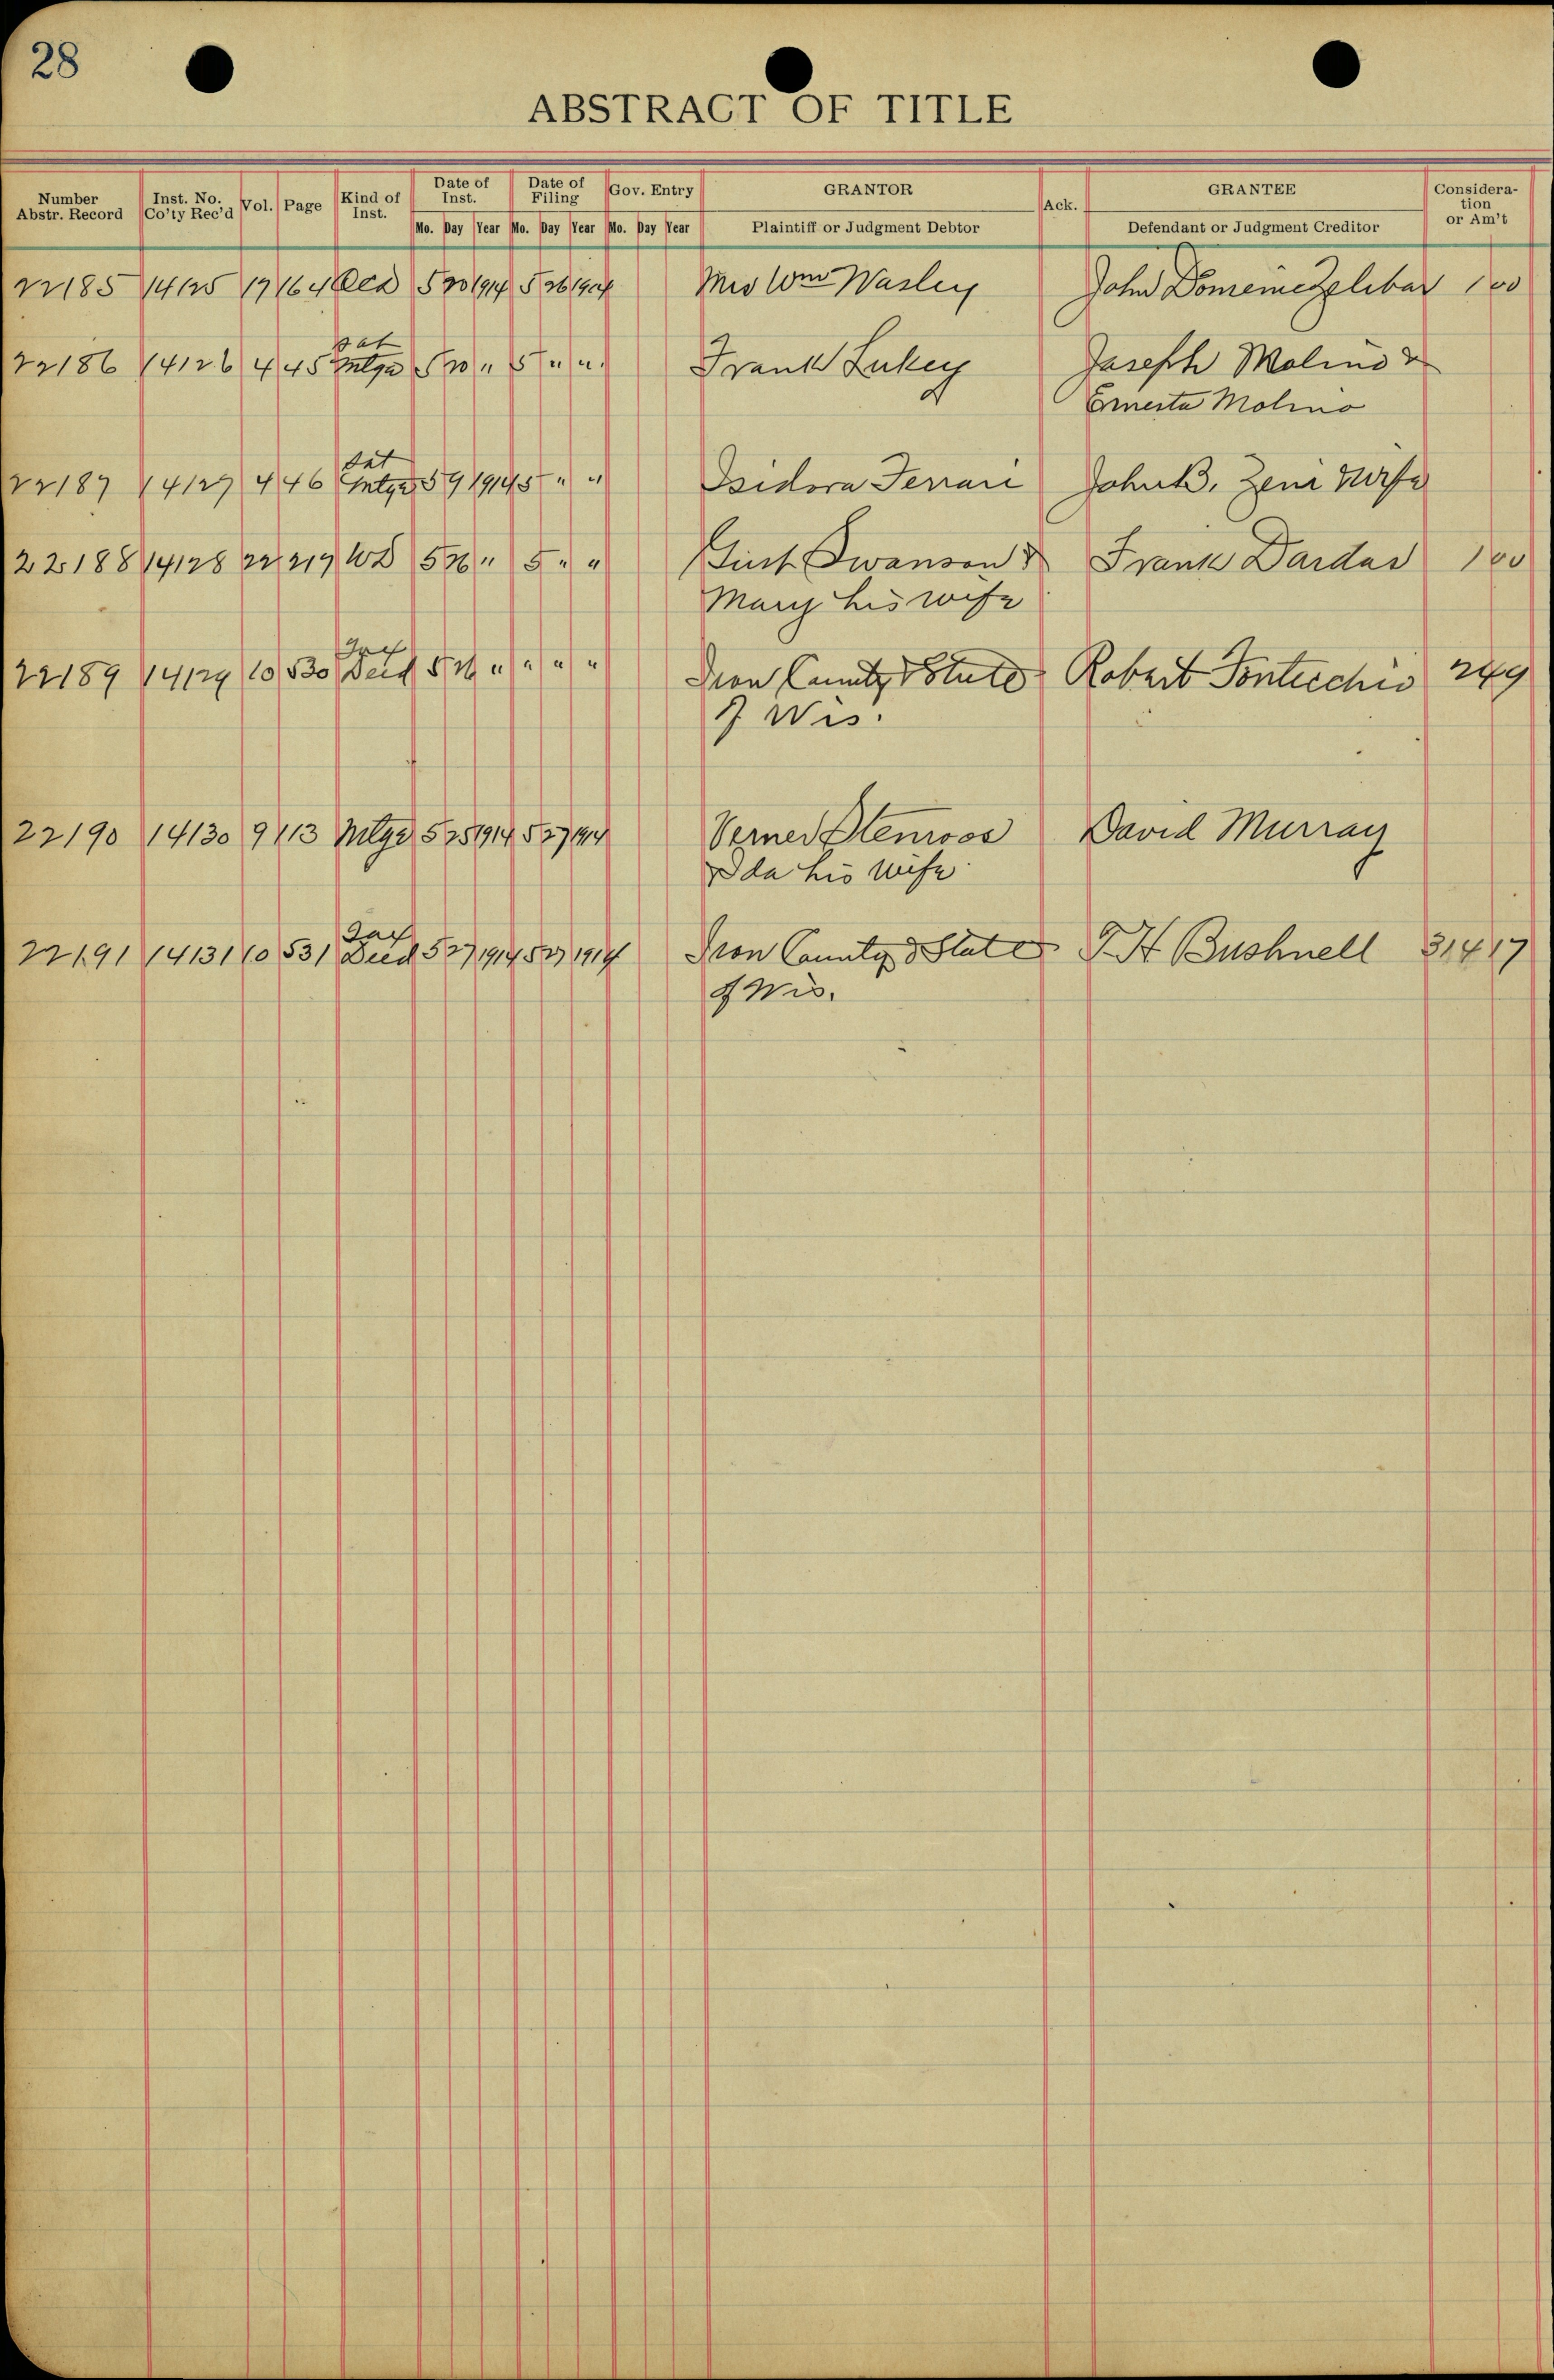 28
ABSTRACT OF TITLE
Number Abstr. Record Inst. No. Co'ty Rec'd Vol. Page Kind of Inst. Date of Inst. Date of Filing Gov. Entry GRANTOR Ack. GRANTEE Consideration or Am't
Mo. Day Year Mo. Day Year Mo. Day Year Plaintiff or Judgment Debtor Defendant or Judgment Creditor
22185 14125 17 164 5 20 1914 5 26 1914 Mrs Wm Wasley John Zelebar 100
Sat
22186 14126 4 45 Mtge 5 20 " 5 " " Frank Lukey Joseph Molino &
Ernesta Molino
Sat
22187 14127 4 46 Mtge 5 9 1914 5 " " Isidora Ferrari John B. Zeni Wife
22188 14128 22 217 WD 5 26 " 5 " " Gust Swanson & Frank Dardas 100
Mary his wife
Tax
22189 14129 10 530 Deed 5 26 " " " " Iron County & State Robert Pontecchio 249
of Wis.
22190 14130 9 113 Mtge 5 25 1914 5 27 1914 Verner Stenroos David Murray
Ida his wife
Tax
22191 14131 10 531 Deed 5 27 1914 5 27 1914 Iron County & State T H Bushnell 314 17
of Wis.